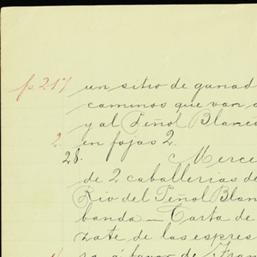 p. 217 un sitio de ganad
caminos que van a
y al Peñol Blanco
2 en fojas 2.
28. Merce
de 2 caballerías de
Rio del Peñol Blan
banda — Carta de
zate de las espres
ra á favor de Fran